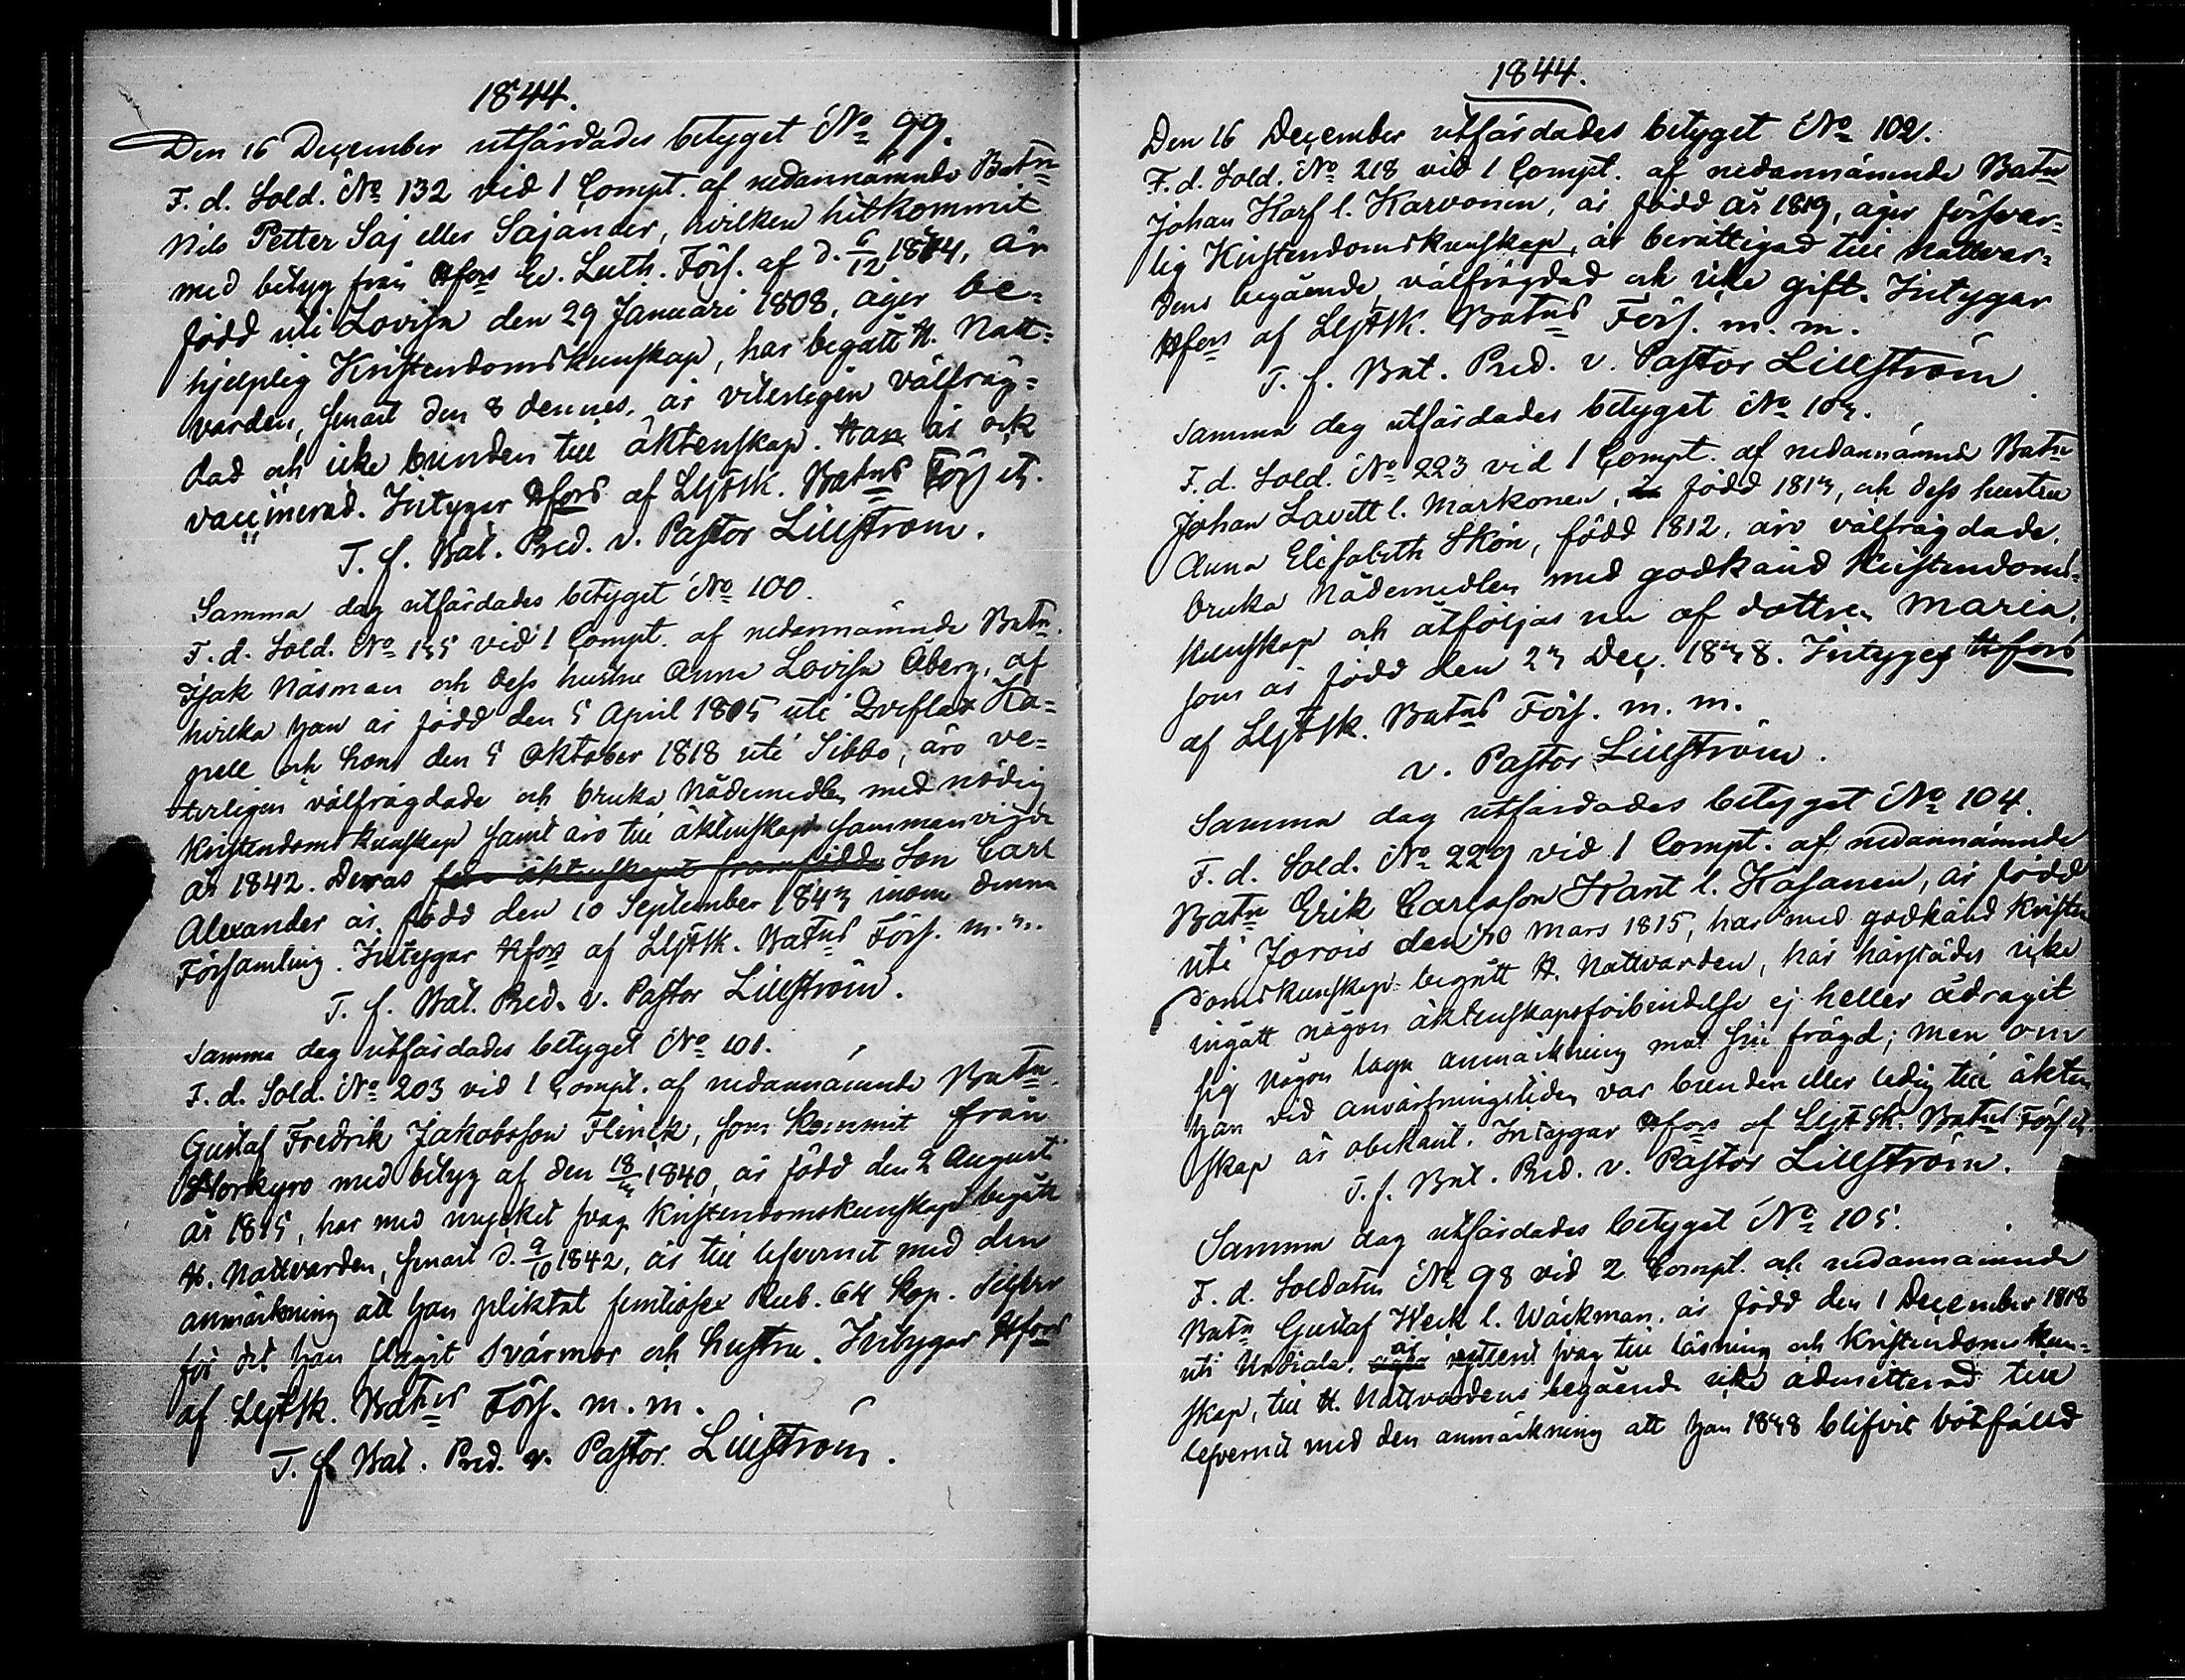 1844.
Den 16 December utfärdades betyget No 99.
F. d. Sold. No 132 vid 1 Compt. af nedannämnde Batn
Nils Petter Saj eller Sajander, hvilken hitkommit
med betyg från Hfors Ev. Luth. Förs. af d. 6/12 1844, är
född uti Lovisa den 29 Januari 1808, äger be=
hjelplig Kristendomskunskap, har begått H. Natt=
varden, senast den 8 dennes, är viterligen välfräg=
dad och icke bunden till äktenskap. Han är ock
vaccinerad. Intygar Hfors af LljtSk. Batns Förs
T. f. Bat. Pred. v. Pastor Lillström.
Samma dag utfärdades betyget No 100.
F. d. Sold. No 135 vid 1 Compt. af nedannämnde Batn.
Isak Näsman och dess hustru Anna Lovisa Åberg, af
hvilka han är född den 5 April 1805 uti Qveflax Ka=
pell och hon den 5 Oktober 1818 uti Sibbo, äro ve=
terligen välfrägdade och bruka Nådemedlen med nödig
Kristendomskunskap samt äro till äktenskap sammanvigde
år 1842. Deras före äktenskapet framfödda Son Carl
Alexander är född den 10 September 1843 inom denna
Församling. Intygar Hfors af LljtSk. Batns Förs. m. m.
T. f. Bat. Pred. v. Pastor Lillström.
Samma dag utfärdades betyget No 101.
F. d. Sold. No 203 vid 1 Compt. af nedannämnde Batn.
Gustaf Fredrik Jakobsson Flinck, som kommit från
Storkyro med betyg af den 18/3 1840, är född den 2 Augusti
år 1815, har med mycket svag Kristendomskunskap begått
H. Nattvarden, senast d. 9/10 1842, är till lefvernet med den
anmärkning att han pliktat Rub. 64 Kop. Silfver
för det han slagit Svärmor och hustru. Intygar Hfors
af LljtSk. Batns Förs. m. m.
T. f. Bat. Pred. v. Pastor Lillström.
1844.
Den 16 December utfärdades betyget No 102.
F. d. Sold. No 218 vid 1 Compt. af nedannämnde Batn
Johan Harf l. Karvonen, är född år 1819, äger försvar=
lig Kristendomskunskap, är berättigad till Nattvar=
dens begående, välfrägdad och icke gift. Intygar
Hfors af LljtSk. Batns Förs. m. m.
T. f. Bat. Pred. v. Pastor Lillström
Samma dag utfärdades betyget No 103.
F. d. Sold. No 223 vid 1 Compt. af nedannämnde Batn
Johan Lavett l. Markonen, född 1813, och dess hustru
Anna Elisabeth Skön, född 1812, äro välfrägdade,
bruka Nådemedlen med godkänd Kristendoms=
kunskap och åtföljas nu af dottren Maria,
som är född den 23 Dec. 1838. Intygar Hfors
af LljtSk. Batns Förs. m. m.
v. Pastor Lillström.
Samma dag utfärdades betyget No 104.
F. d. Sold. No 229 vid 1 Compt. af nedannämnde
Batn Erik Carlsson Hant l. Hasanen, är född
uti Jorois den 30 Mars 1815, har med godkänd Kristen
domskunskap begått H. Nattvarden, har härstädes icke
ingått någon äktenskapsförbindelse ej heller ådragit
sig någon laga anmärkning mot sin frägd; men om
han vid anvärfningstiden var bunden eller ledig till äkten
skap är obekant. Intygar Hfors af LljtSk. Batns Förs
T. f. Bat. Pred. v. Pastor Lillström.
Samma dag utfärdades betyget No 105.
F. d. Soldaten No 98 vid 2 Compt. och nedannämnde
Batn Gustaf Weck l. Wäckman, är född den 1 December 1818
uti Urdiala, är svag till läsning och Kristendomskun=
skap, till H. Nattvardens begående icke admitterad till
lefvernet med den anmärkning att han 1838 blifvit bötfälld